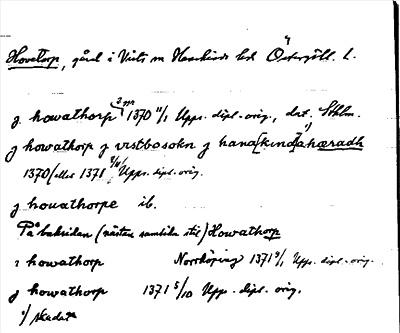 Hovetorp, gård i Vists sn Hanekinds hd Östergötl. l.
j howathorp 2 ggr 1370 11/1 Upps. dipl. orig., dat. Sthlm.
j howathorp j vistbosokn j hana[kind]a 1) hæradh
1370 (eller 1371 Upps. dipl. orig.
j houathorpe ib.
På baksidan (nästan samtida stil) Howathorp
i howathorp Norrköping 1371 Upps. dipl. orig.
j howathorp 1371 5/10 Upps. dipl. orig.
1) Skadat